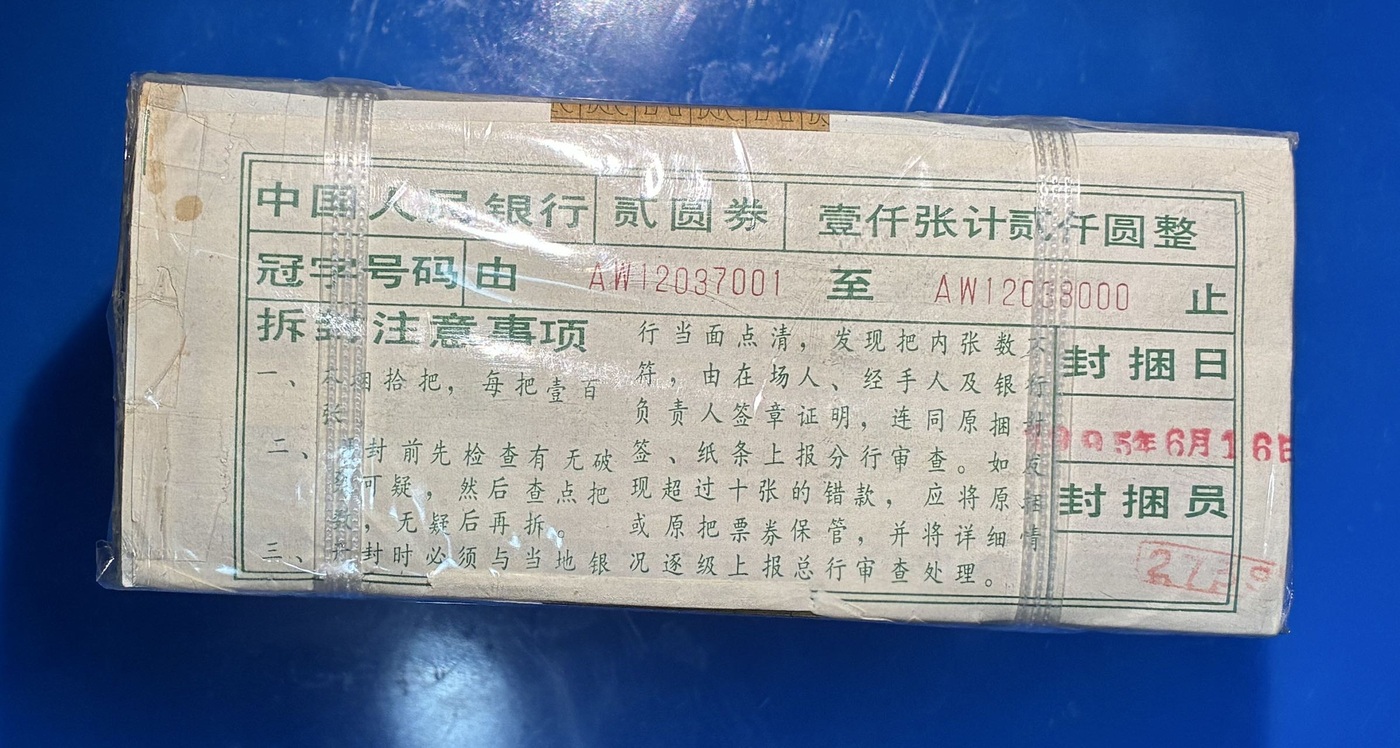 中国人民银行 贰圆券 壹仟张计贰仟圆整
冠字号码 由 AW12037001 至 AW12038000 止
拆封注意事项
一、本捆拾把，每把壹百
张
二、拆封前先检查有无破
可疑，然后查点把
数，无疑后再拆。
三、开封时必须与当地银
行当面点清，发现把内张数不
符，由在场人、经手人及银行
负责人签章证明，连同原捆封
签、纸条上报分行审查。如发
现超过十张的错款，应将原捆
或原把票券保管，并将详细情
况逐级上报总行审查处理。
封捆日
1995年6月16日
封捆员